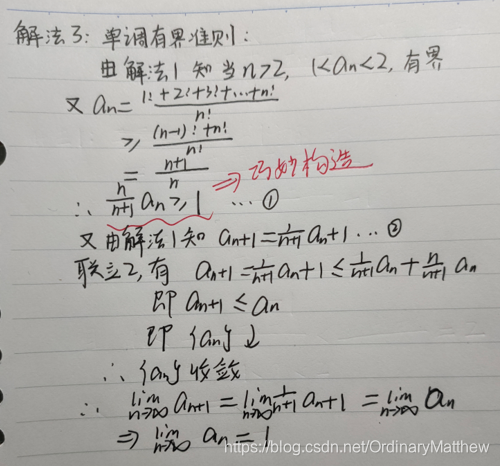 解法3: 单调有界准则:
由解法1知当n>2, 1<an<2, 有界
又 an = (1!+2!+3!+…+n!)/n!
≥ ((n-1)!+n!)/n!
= (n+1)/n ⇒ 巧妙构造
∴ n/(n+1) an ≥ 1 …①
又由解法1知 an+1 = 1/(n+1) an + 1 …②
联立2, 有 an+1 = 1/(n+1) an + 1 ≤ 1/(n+1) an + n/(n+1) an
即 an+1 ≤ an
即 {an}↓
∴ {an} 收敛
∴ lim n→∞ an+1 = lim n→∞ 1/(n+1) an + 1 = lim n→∞ an
⇒ lim n→∞ an = 1
https://blog.csdn.net/OrdinaryMatthew